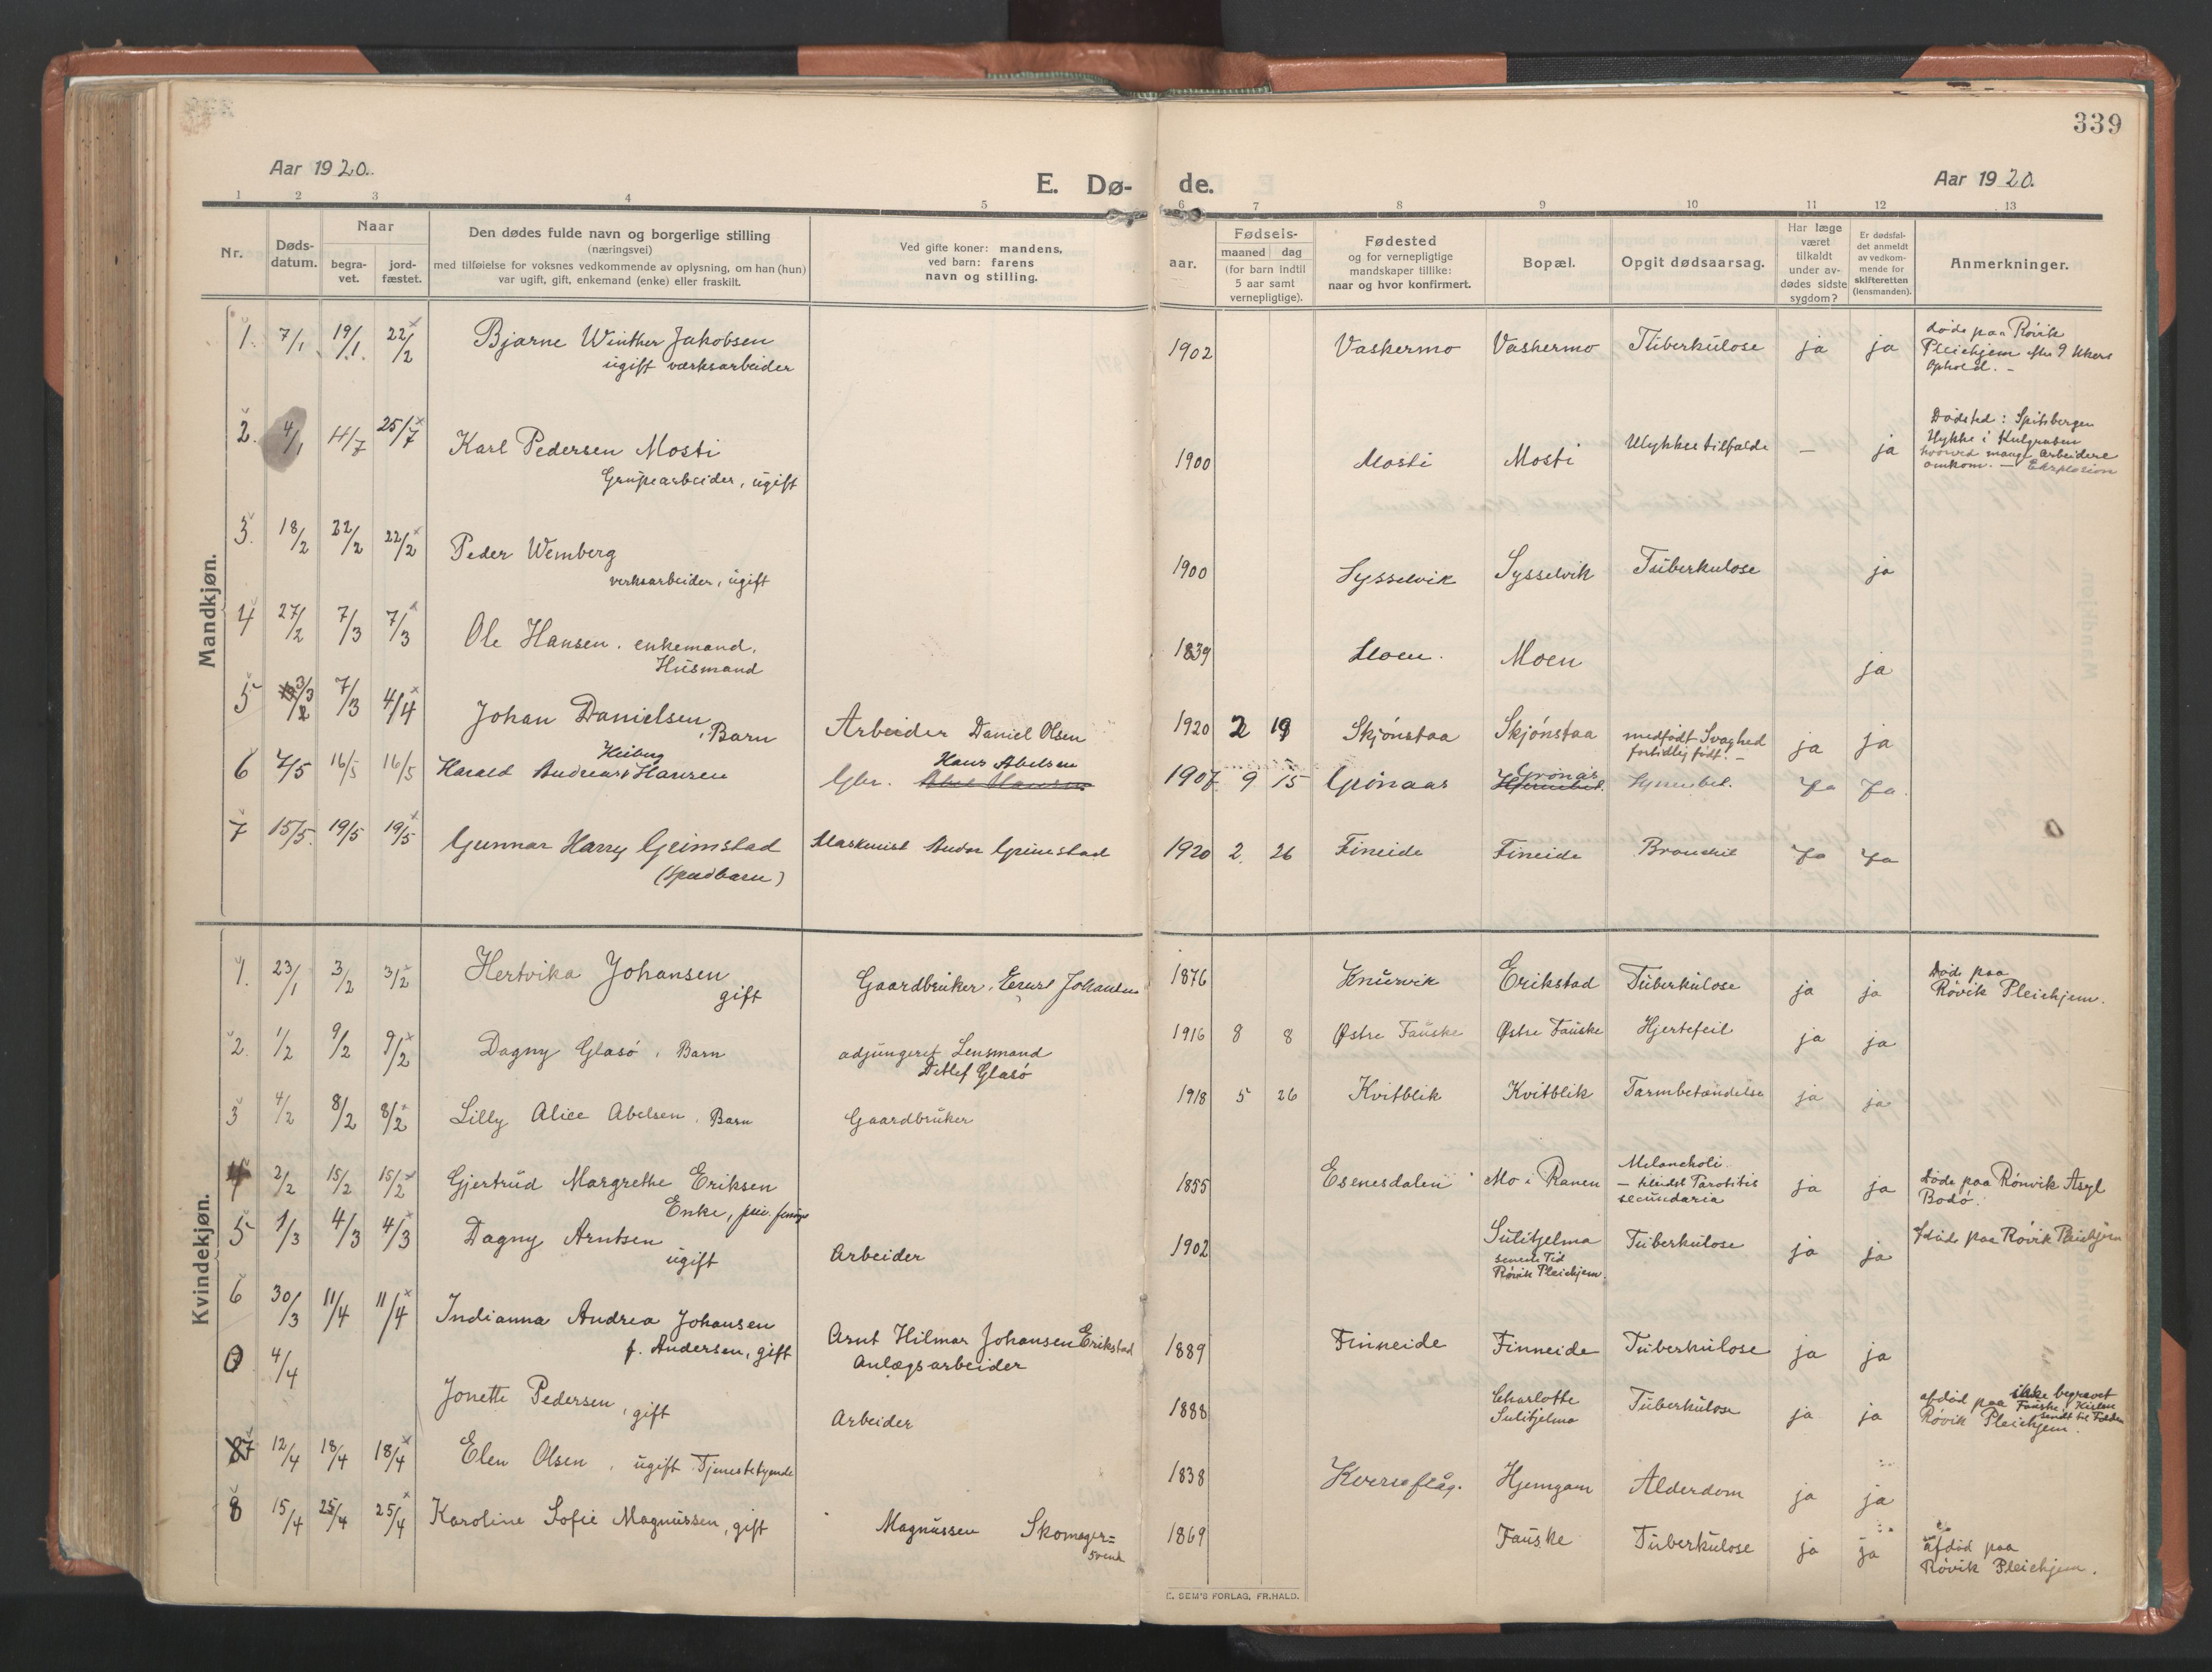 339
Aar 1920.
E. Dø- de.
Aar 1920.
1 2 3 4 5 6 7 8 9 10 11 12 13
Nr.
Døds-
datum.
Naar
begra-
vet.
jord-
fæstet.
Den dødes fulde navn og borgerlige stilling
(næringsvei)
med tilføielse for voksnes vedkommende av oplysning, om han (hun)
var ugift, gift, enkemand (enke) eller fraskilt.
Ved gifte koner: mandens,
ved barn: farens
navn og stilling.
Fødsels-
aar.
maaned dag
(for barn indtil
5 aar samt
vernepligtige).
Fødested
og for vernepligtige
mandskaper tillike:
naar og hvor konfirmert.
Bopæl.
Opgit dødsaarsag.
Har læge
været
tilkaldt
under av-
dødes sidste
sygdom?
Er dødsfal-
det anmeldt
av vedkom-
mende for
skifteretten
(lensmanden).
Anmerkninger.
Mandkjøn.
1. 7/1 19/1. 22/2 Bjarne Winther Jakobsen
ugift værksarbeider
1902 Vaskermo Vaskermo Tüberkülose ja ja
døde paa Røvik
Pleiehjem efter 9 Ukers
Ophold. -
2. 4/1 11/7 25/7 Karl Pedersen Mosti
Grubearbeider, ugift
1900 Mosti Mosti Ulykkestilfælde - ja
Dødsted: Spitsbergen
Ulykke i Kulgruben
hvorved mange Arbeidere
omkom. - Eksplosion
3. 18/2 22/2 22/2 Peder Wemberg
verksarbeider, ugift
1900 Sysselvik Sysselvik Tüberkulose ja
4 27/2 7/3 7/3 Ole Hansen. enkemand.
Husmand
1839 Moen. Moen ja
5 3/3 7/3 4/4 Johan Danielsen, Barn
Arbeider Daniel Olsen
1920 2 19 Skjønstaa Skjønstaa medfødt Svaghed
fortidlig født. - ja ja
6 7/5 16/5 16/5 Harald Andreas Heiberg Hansen
Gbr. Hans Abelsen
1907. 9 15 Grønaas Grønås Ja Ja.
7 15/5. 19/5 19/5 Gunnar Harry Grimstad
(spædbarn)
Maskinist Andor Grimstad
1920 2. 26 Fineide Fineide Bronchit Ja Ja
Kvindekjøn.
1. 23/1 3/2 3/2 Hertvika Johansen
gift
Gaardbruker. Johansen
1876 Knürvik Erikstad Tüberkülose ja ja
Død paa
Røvik Pleiehjem.
2. 1/2 9/2 9/2 Dagny Glasø, Barn
adjungeret Lensmand
Detlef Glasø
1916 8 8 Østre Fauske Østre Fauske Hjertefeil ja ja
3 4/2 8/2 8/2 Lilly Alice Abelsen. Barn
Gaardbruker
1918 5 26 Kvitblik Kvitblik Tarmbetændelse ja ja
4 2/2 15/2 15/2 Gjertrud Margrethe Eriksen
Enke,
1855 Esenesdalen Mo i Ranen Melancholi.
- Parotitis
secundaria ja ja
Døde paa Rønvik Asyl
Bodø.
5 1/3 4/3 4/3 Dagny Arntsen
ugift
Arbeider
1902 Sulitjelma
Tid
Røvik Pleiehjem. Tüberkulose ja ja
døde paa Røvik Pleiehjem
6 30/3 11/4 11/4 Indianna Andrea Johansen
f. Andersen, gift
Arnt Hilmar Johansen Erikstad
Anlægsarbeider
1889 Finneide Finneide Tüberkulose ja ja
0 4/4
Jonette Pedersen, gift
Arbeider
1888 Charlotte
Sulitjelma Tüberkulose ja ja
afdød paa
Røvik Pleiehjem.
ikke begravet
Fauske, Kisten
sendt til Folden
7 12/4 18/4 18/4 Elen Olsen, ugift Tjenestetyende
1838 Kversflåg. Hjemgam Alderdom ja ja
8 15/4 25/4 25/4 Karoline Sofie Magnussen, gift
Magnussen Skomager=
svend
1869 Fauske Tüberkulose ja ja
afdød paa
Røvik Pleiehjem.
E. SEM'S FORLAG, FR.HALD.